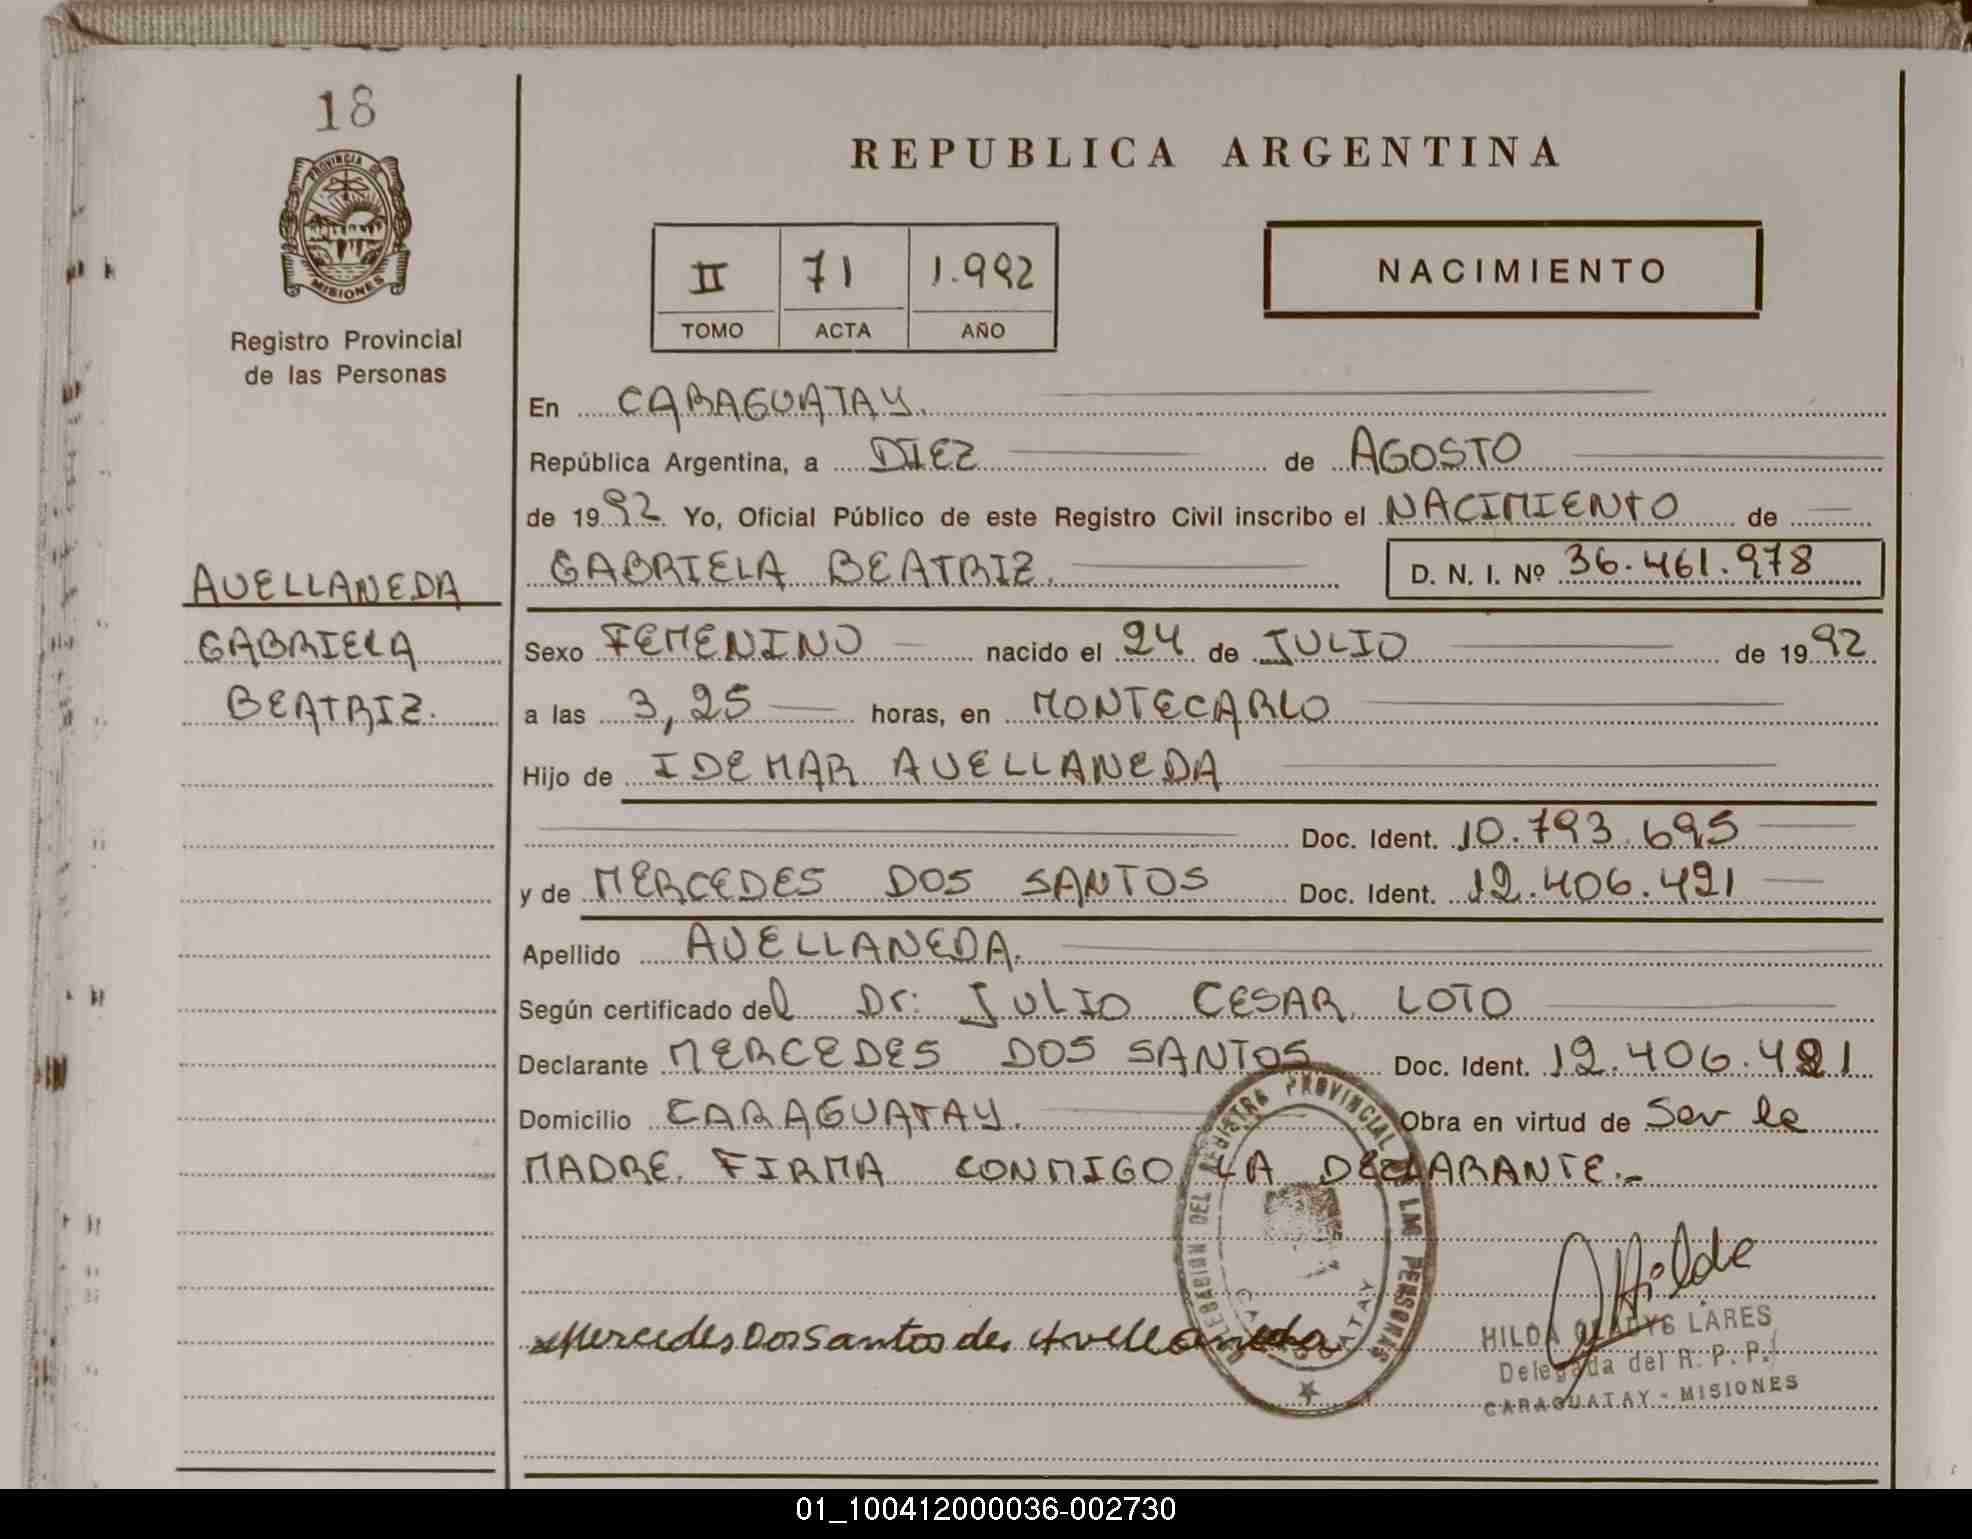 18
PROVINCIA DE
MISIONES
Registro Provincial
de las Personas
AVELLANEDA
GABRIELA
BEATRIZ.
REPUBLICA ARGENTINA
II 71 1.992
TOMO ACTA AÑO
NACIMIENTO
En CARAGUATAY.
República Argentina, a DIEZ de AGOSTO
de 1992 Yo, Oficial Público de este Registro Civil inscribo el NACIMIENTO de
GABRIELA BEATRIZ. D. N. I. Nº 36.461.978
Sexo FEMENINO nacido el 24 de JULIO de 1992
a las 3,25 horas, en MONTECARLO
Hijo de IDEMAR AVELLANEDA
Doc. Ident. 10.793.695
y de MERCEDES DOS SANTOS Doc. Ident. 12.406.421
Apellido AVELLANEDA.
Según certificado del Dr: JULIO CESAR LOTO
Declarante MERCEDES DOS SANTOS Doc. Ident. 12.406.421
Domicilio CARAGUATAY. Obra en virtud de Ser la
MADRE. FIRMA CONMIGO LA DECLARANTE.-
DEL REGISTRO PROVINCIAL PERSONAS
Mercedes Dos Santos de Avellaneda
Hilda
HILDA GLADYS LARES
Delegada del R. P. P.
CARAGUATAY - MISIONES
01_100412000036-002730